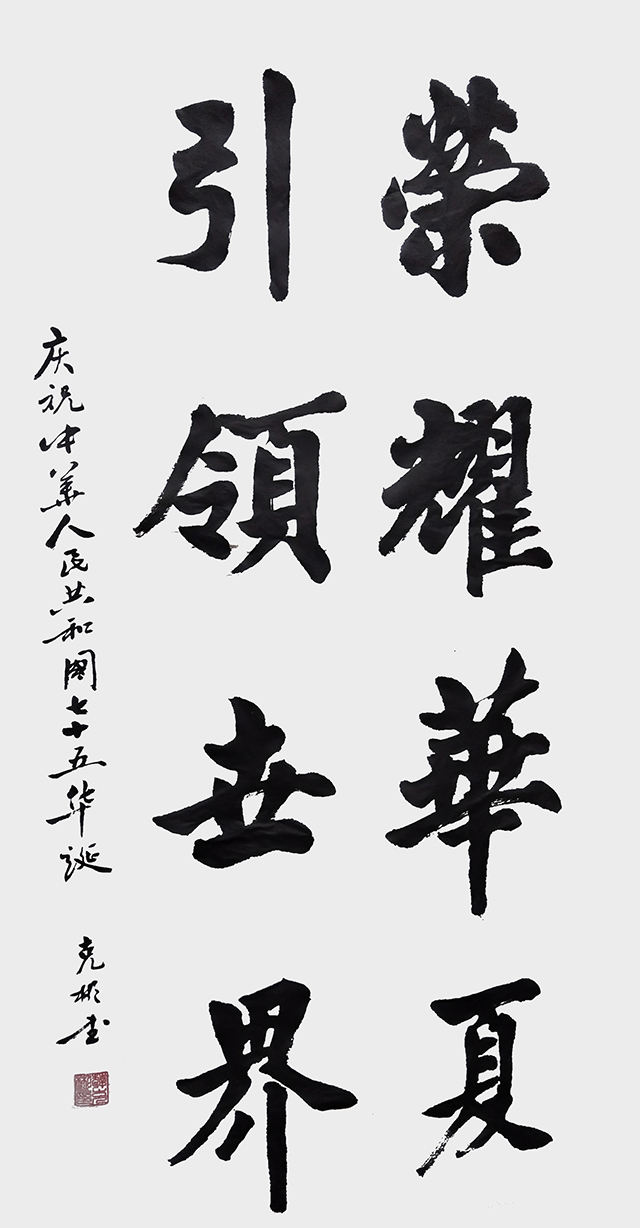 榮耀華夏
引領世界
庆祝中華人民共和國七十五华诞
克彬书